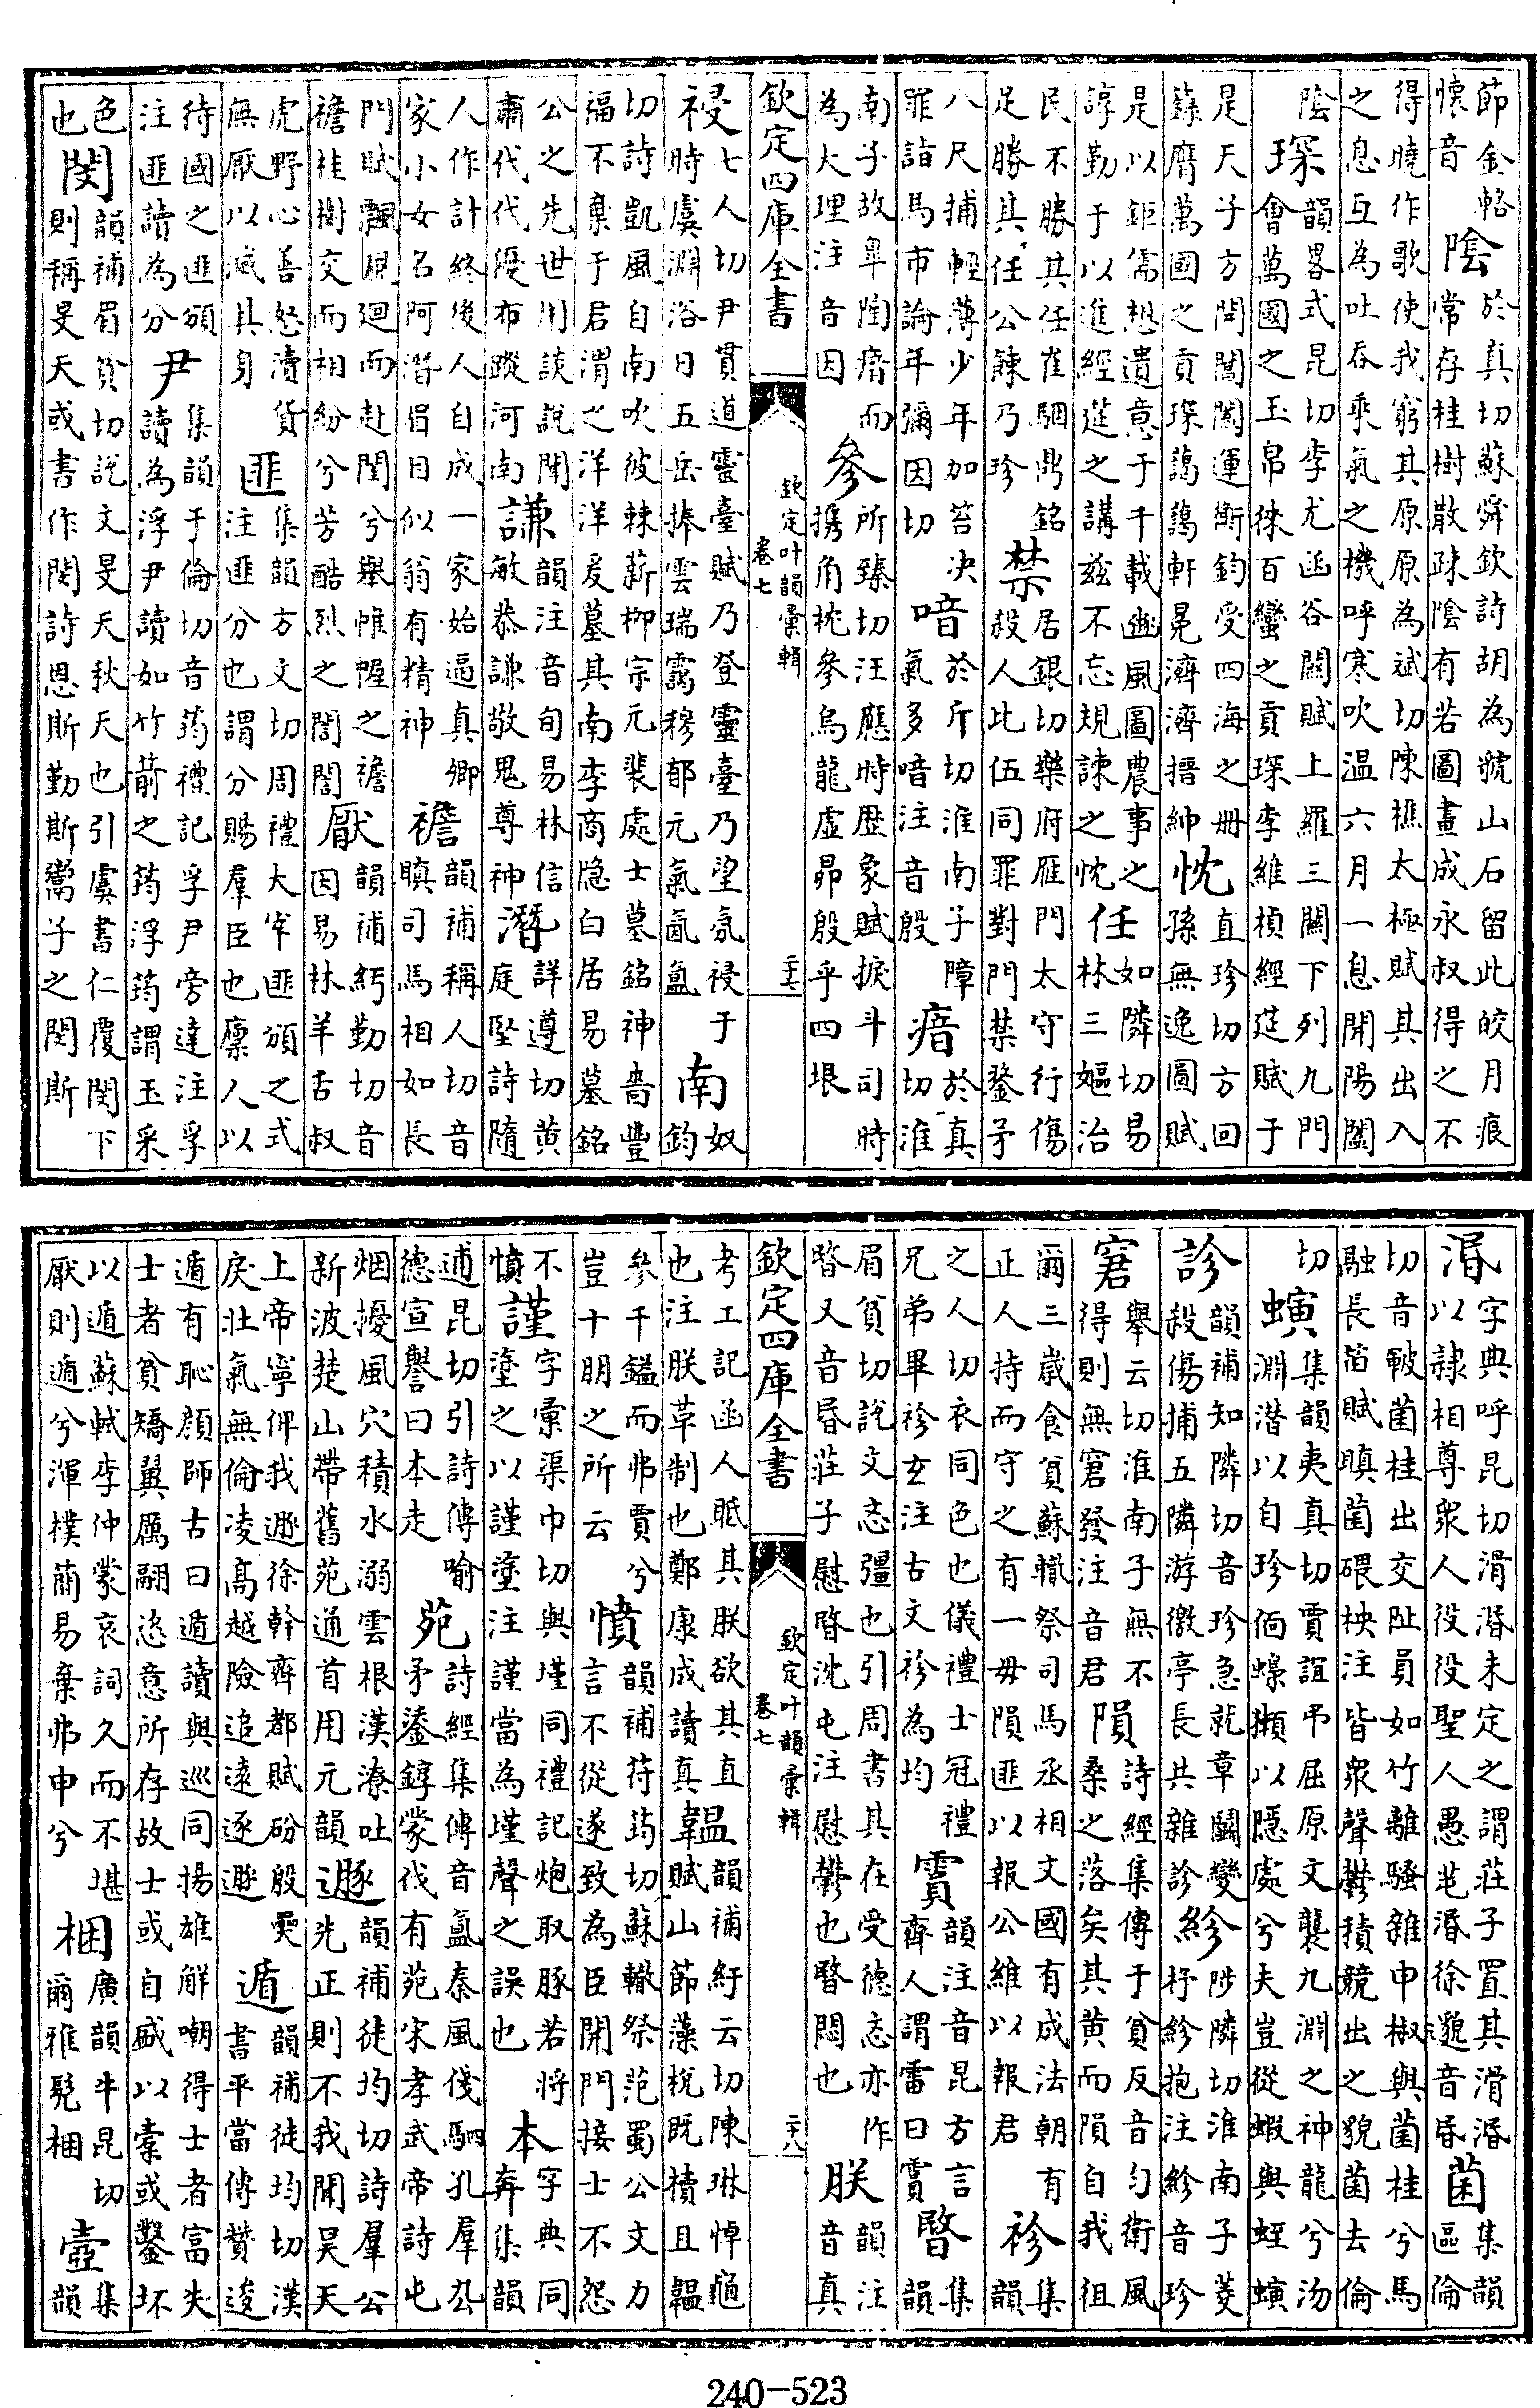 節金輅懷音 陰 於真切蘇舜欽詩胡為號山石留此皎月痕常存桂樹散疎陰有若圖畫成永叔得之不
得曉作歌使我窮其原原為斌切陳樵太極賦其出入之息互為吐吞乘氣之機呼寒吹温六月一息開陽闔
陰 琛 韻畧式昆切李尤函谷關賦上羅三關下列九門會萬國之玉帛徠百蠻之貢琛李維楨經筵賦于
是天子方開閶闔運衡鈞受四海之冊籙膺萬國之貢琛藹藹軒冕濟濟搢紳 忱 直珍切方回孫無逸圖賦
是以鉅儒想遺意于千載豳風圖農事之諄勤于以進經筵之講兹不忘規諫之忱 任 如隣切易林三嫗治
民不勝其任崔駰鼎銘足勝其任公餗乃珍 禁 居銀切樂府雁門太守行傷殺人比伍同罪對門禁鍪矛
八尺捕輕薄少年加笞決罪詣馬市論年彌因切 喑 於斤切淮南子障氣多喑注音殷 瘖 於真切淮
南子故臯陶瘖而為大理注音因 參 所臻切汪應時歴象賦捩斗司時携角枕參烏龍虚昴殷乎四垠
欽定四庫全書 欽定叶韻彙輯 卷七 二十七
祲 七人切尹貫道靈臺賦乃登靈臺乃望氛祲于時虞淵浴日五岳捧雲瑞靄穆郁元氣氤氲 南 奴鈞
切詩凱風自南吹彼棘薪柳宗元裴處士墓銘神嗇豐福不棄于君渭之洋洋爰墓其南李商隐白居易墓銘
公之先世用談說聞肅代代優布蹤河南 謙 韻注音旬易林信敏恭謙敬鬼尊神 潛 詳遵切黄庭堅詩隨
人作計終後人自成一家始逼真卿家小女名阿潛眉目似翁有精神 襜 韻補稱人切音瞋司馬相如長
門賦飄風廻而赴閨兮舉帷幄之襜襜桂樹交而相紛兮芳酷烈之誾誾 厭 韻補紆勤切音因易林羊舌叔
虎野心善怒瀆貨無厭以滅其身 匪 集韻方文切周禮大宰匪頒之式注匪分也謂分賜羣臣也廩人以
待國之匪頒注匪讀為分 尹 集韻于倫切音筠禮記孚尹旁達注孚讀為浮尹讀如竹箭之筠浮筠謂玉采
色也 閔 韻補眉貧切說文旻天秋天也引虞書仁覆閔下則稱旻天或書作閔詩恩斯勤斯鬻子之閔斯
涽 字典呼昆切滑涽未定之謂莊子置其滑涽以隸相尊衆人役役聖人愚芚涽徐邈音昏 菌 集韻區倫
切音皸菌桂出交阯員如竹離騷雜申椒與菌桂兮馬融長笛賦瞋菌碨柍注皆衆聲鬱積競出之貌菌去倫
切 螾 集韻夷真切賈誼弔屈原文襲九淵之神龍兮沕淵潛以自珍偭蟂獺以隱處兮夫豈從蝦與蛭螾
診 韻補知隣切音珍急就章鬬變殺傷捕五隣游徼亭長共雜診 紾 陟隣切淮南子菱杼紾抱注紾音珍
窘 舉云切淮南子無不得則無窘發注音君 隕 詩經集傳于貧反音匀衛風桑之落矣其黄而隕自我徂
爾三歲食貧蘇軾祭司馬丞相文國有成法朝有正人持而守之有一毋隕匪以報公維以報君 袗 集韻
之人切衣同色也儀禮士冠禮兄弟畢袗玄注古文袗為均 霣 韻注音昆方言齊人謂雷曰霣 暋 集韻
眉貧切說文忞彊也引周書其在受德忞亦作暋又音昏莊子慰暋沈屯注慰鬱也暋悶也 朕 韻注音真
欽定四庫全書 欽定叶韻彙輯 卷七 二十八
考工記函人眂其朕欲其直也注朕革制也鄭康成讀真 韞 韻補紆云切陳琳悼龜賦山節藻梲既櫝且韞
參千鎰而弗賈兮豈十朋之所云 憤 韻補符筠切蘇轍祭范蜀公文力言不從遂致為臣開門接士不怨
不憤 謹 字彙渠巾切與墐同禮記炮取豚若將塗之以謹塗注謹當為墐聲之誤也 本 字典同奔集韻
逋昆切引詩傳喻德宣譽曰本走 苑 詩經集傳音氲秦風俴駟孔羣厹矛鋈錞蒙伐有苑宋孝武帝詩屯
烟擾風穴積水溺雲根漢潦吐新波楚山帶舊苑通首用元韻 遯 韻補徒均切詩羣公先正則不我聞昊天
上帝寧俾我遯徐幹齊都賦砏殷㚁戾壯氣無倫凌高越險追遠逐遯 遁 韻補徒均切漢書平當傳贊逡
遁有恥顔師古曰遁讀與巡同揚雄解嘲得士者富失士者貧矯翼厲翮恣意所存故士或自盛以橐或鑿坏
以遁蘇軾李仲蒙哀詞久而不堪厭則遁兮渾樸蕳易棄弗申兮 梱 廣韻牛昆切爾雅髡梱 壼 集韻
240-523